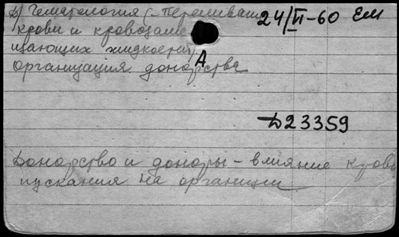 Гематология (- переливан
24/VI-60 Ем
крови и кровозаме
щающих жидкостей,
А
организация донорства
Д23359
Донорство и доноры - влияние крово
пускания на организм